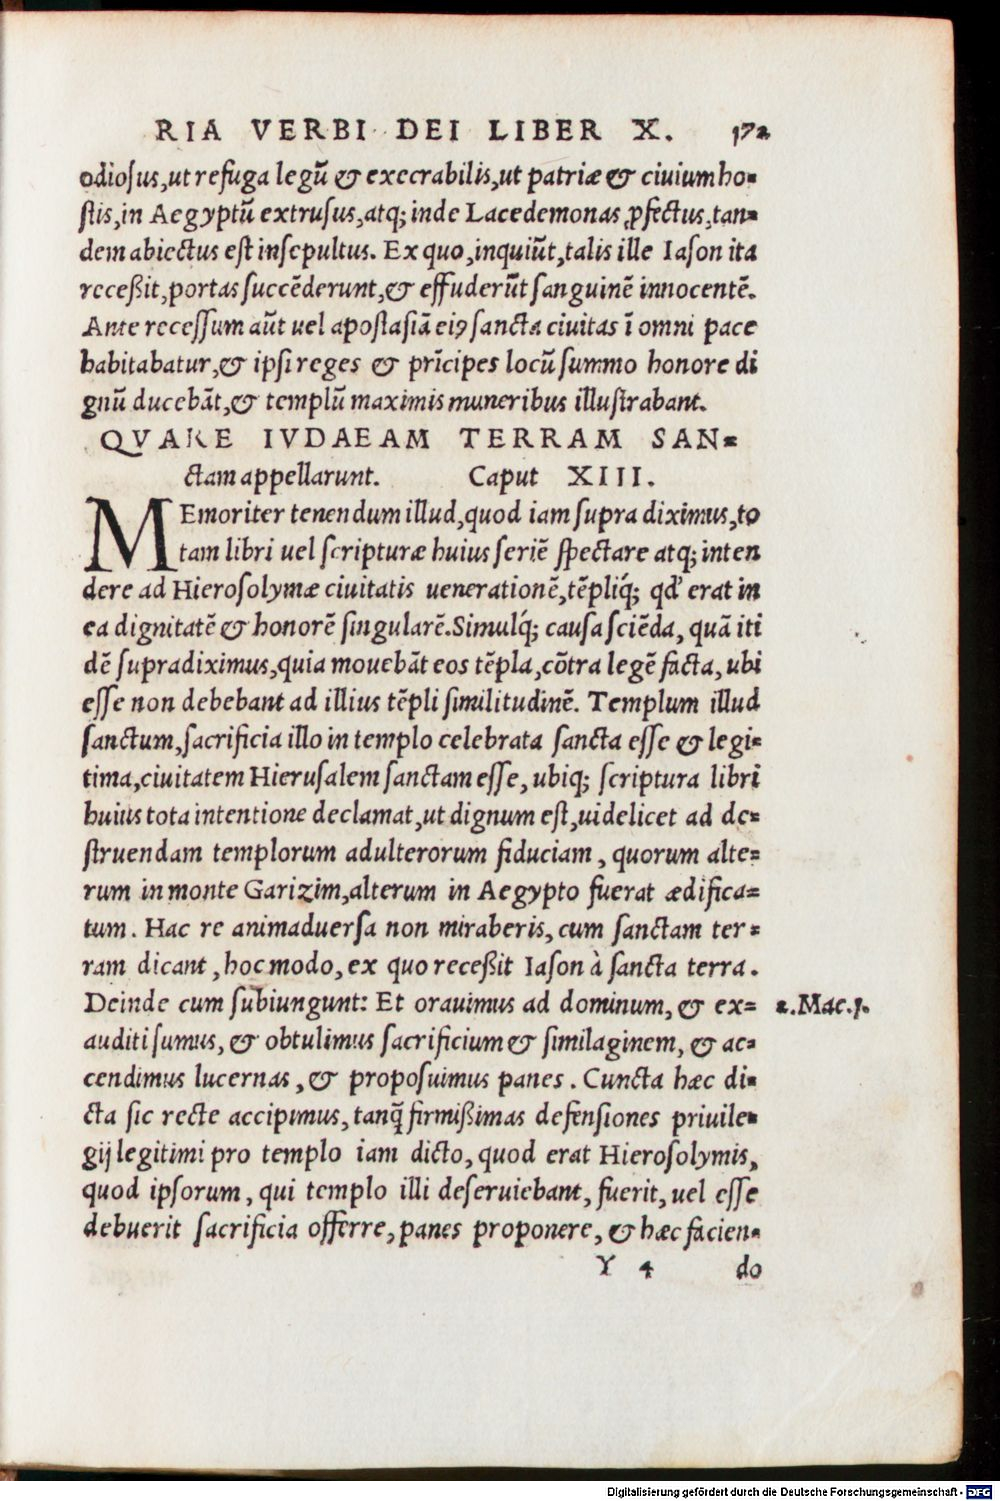 RIA VERBI DEI LIBER X. 172
odiosus, ut refuga legū & execrabilis, ut patriæ & ciuium ho=
stis, in Aegyptū extrusus, atq; inde Lacedemonas ꝓfectus, tan=
dem abiectus est insepultus. Ex quo, inquiūt, talis ille Iason ita
receßit, portas succēderunt, & effuderūt sanguinē innocentē.
Ante recessum aūt uel apostasiā eiꝰ sancta ciuitas ī omni pace
habitabatur, & ipsi reges & prīcipes locū summo honore di
gnū ducebāt, & templū maximis muneribus illustrabant.
QVARE IVDAEAM TERRAM SAN=
ctam appellarunt. Caput XIII.
MEmoriter tenendum illud, quod iam supra diximus, to
tam libri uel scripturæ huius seriē spectare atq; inten
dere ad Hierosolymæ ciuitatis uenerationē, tēpliq́; qd' erat in
ea dignitatē & honorē singularē. Simulq́; causa sciēda, quā iti
dē supradiximus, quia mouebāt eos tēpla, cōtra legē facta, ubi
esse non debebant ad illius tēpli similitudinē. Templum illud
sanctum, sacrificia illo in templo celebrata sancta esse & legi=
tima, ciuitatem Hierusalem sanctam esse, ubiq; scriptura libri
huius tota intentione declamat, ut dignum est, uidelicet ad de=
struendam templorum adulterorum fiduciam, quorum alte=
rum in monte Garizim, alterum in Aegypto fuerat ædifica=
tum. Hac re animaduersa non miraberis, cum sanctam ter=
ram dicant, hoc modo, ex quo receßit Iason à sancta terra.
Deinde cum subiungunt: Et orauimus ad dominum, & ex= 2. Mac. 1.
auditi sumus, & obtulimus sacrificium & similaginem, & ac=
cendimus lucernas, & proposuimus panes. Cuncta hæc di=
cta sic recte accipimus, tanq̄ firmißimas defensiones priuile=
gij legitimi pro templo iam dicto, quod erat Hierosolymis,
quod ipsorum, qui templo illi deseruiebant, fuerit, uel esse
debuerit sacrificia offerre, panes proponere, & hæc facien=
Y 4 do
Digitalisierung gefördert durch die Deutsche Forschungsgemeinschaft - DFG